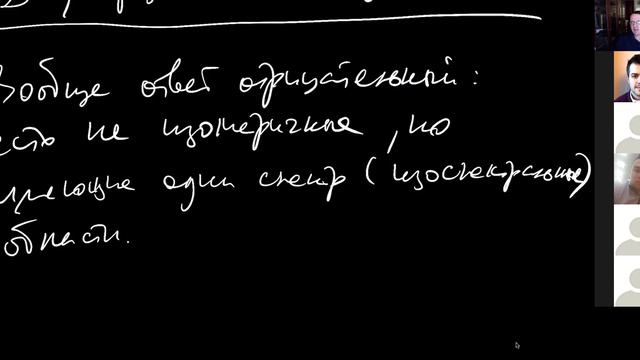 Вообще ответ отрицательный:
есть не изометричные, но
имеющие один спектр (изоспектральные)
области.